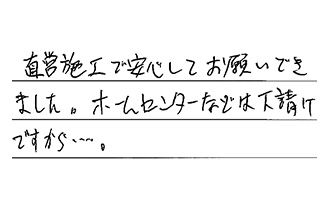 直営施工で安心してお願いでき
ました。ホームセンターなどは下請け
ですから…。